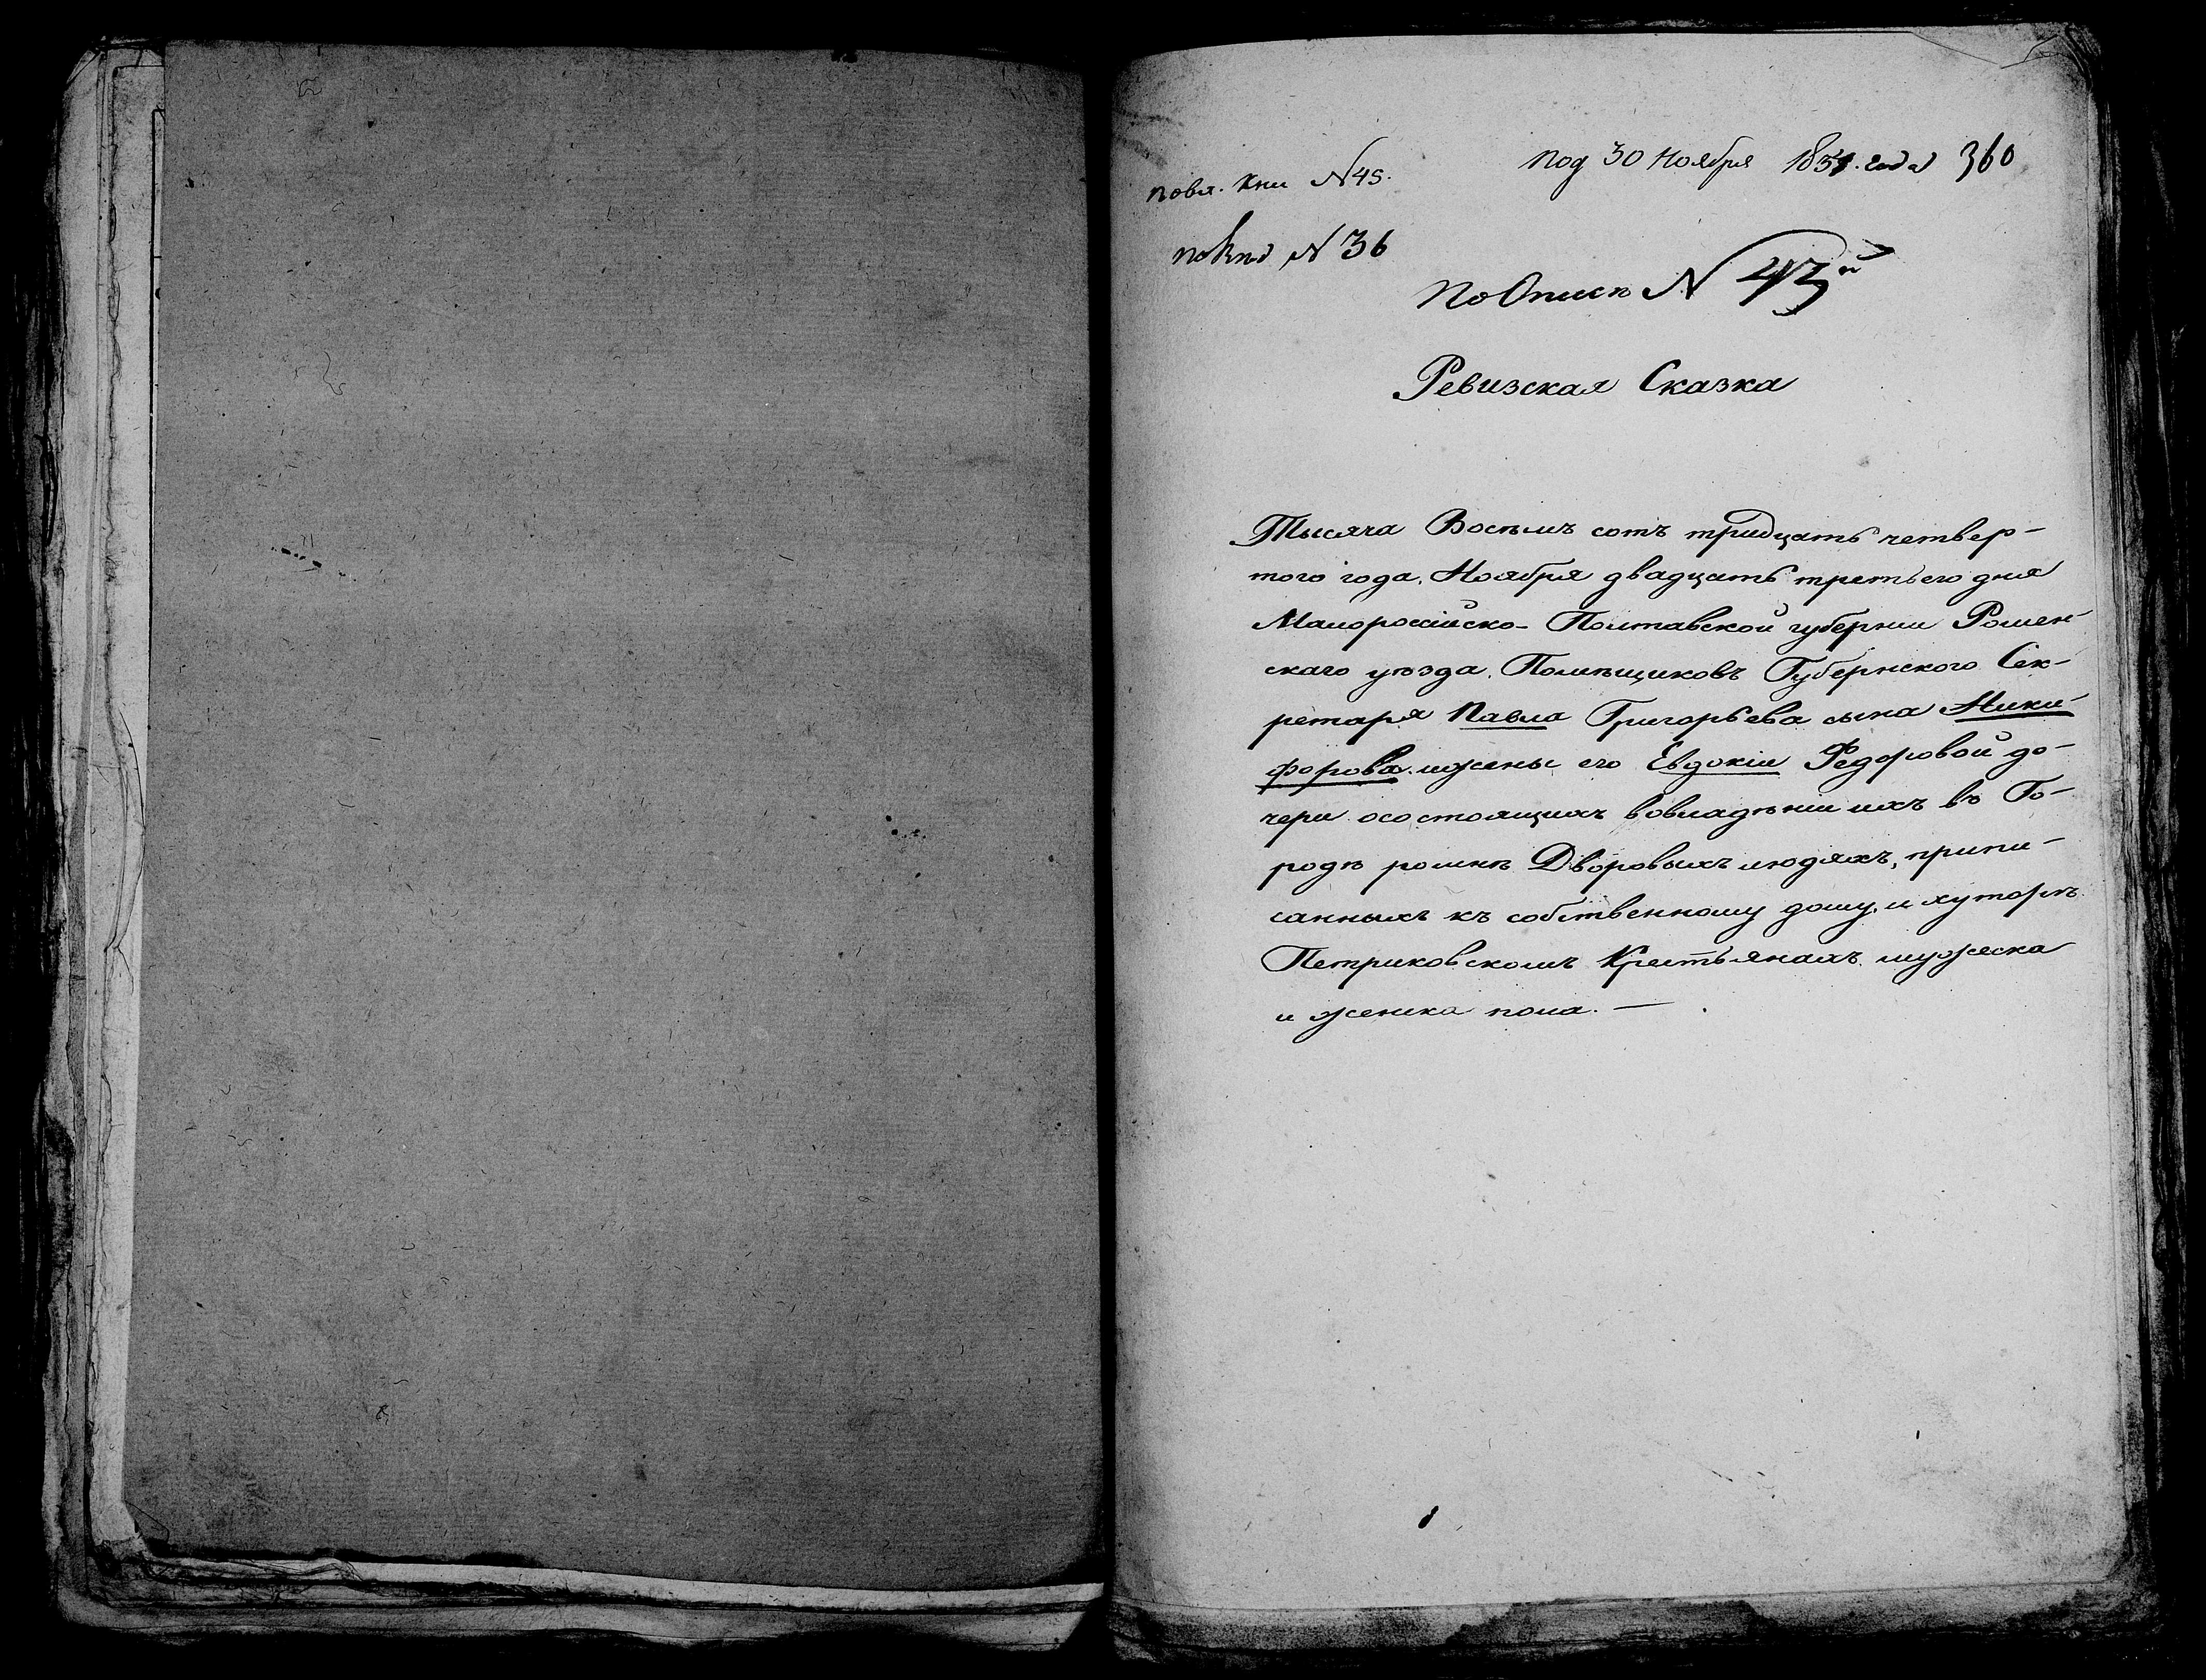 под 30 Ноября 1834. года 360
повл. кни №45.
по кни №36
по Описи № 43й
Ревизская Сказка
Тысяча Восемъ сотъ тридцать четвер-
того года. Ноября двадцать третьего дня
Малоросійско- Полтавской губерніи Ромен-
скаго уѣзда. Помѣщиковъ Губернского Сек-
ретаря Павла Григорьева сына Ники-
форова. ижены его Евдокіи Федоровой до-
чери осостоящихъ вовладѣніи ихъ въ Го-
родѣ ромнѣ Дворовыхъ людяхъ, припи-
санныхъ къ собственному дому, и хуторѣ
Петриковскомъ Крестьянахъ мужеска
и женска пола. —